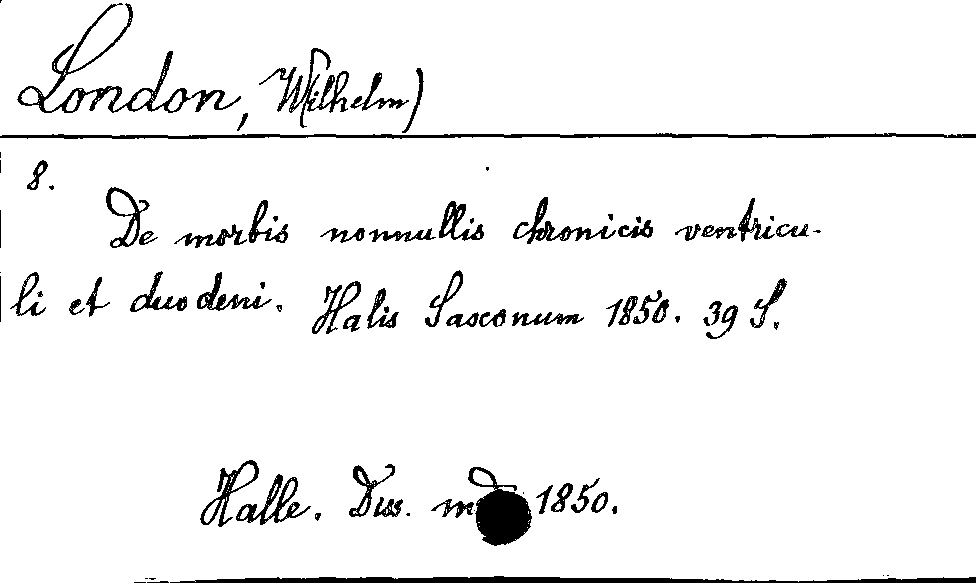 London, Wilhelm)
8.
De morbis nonnullis chronicis ventricu-
li et duodeni. Halis Saxonum 1850. 39 S.
Halle. Diss. 1850.